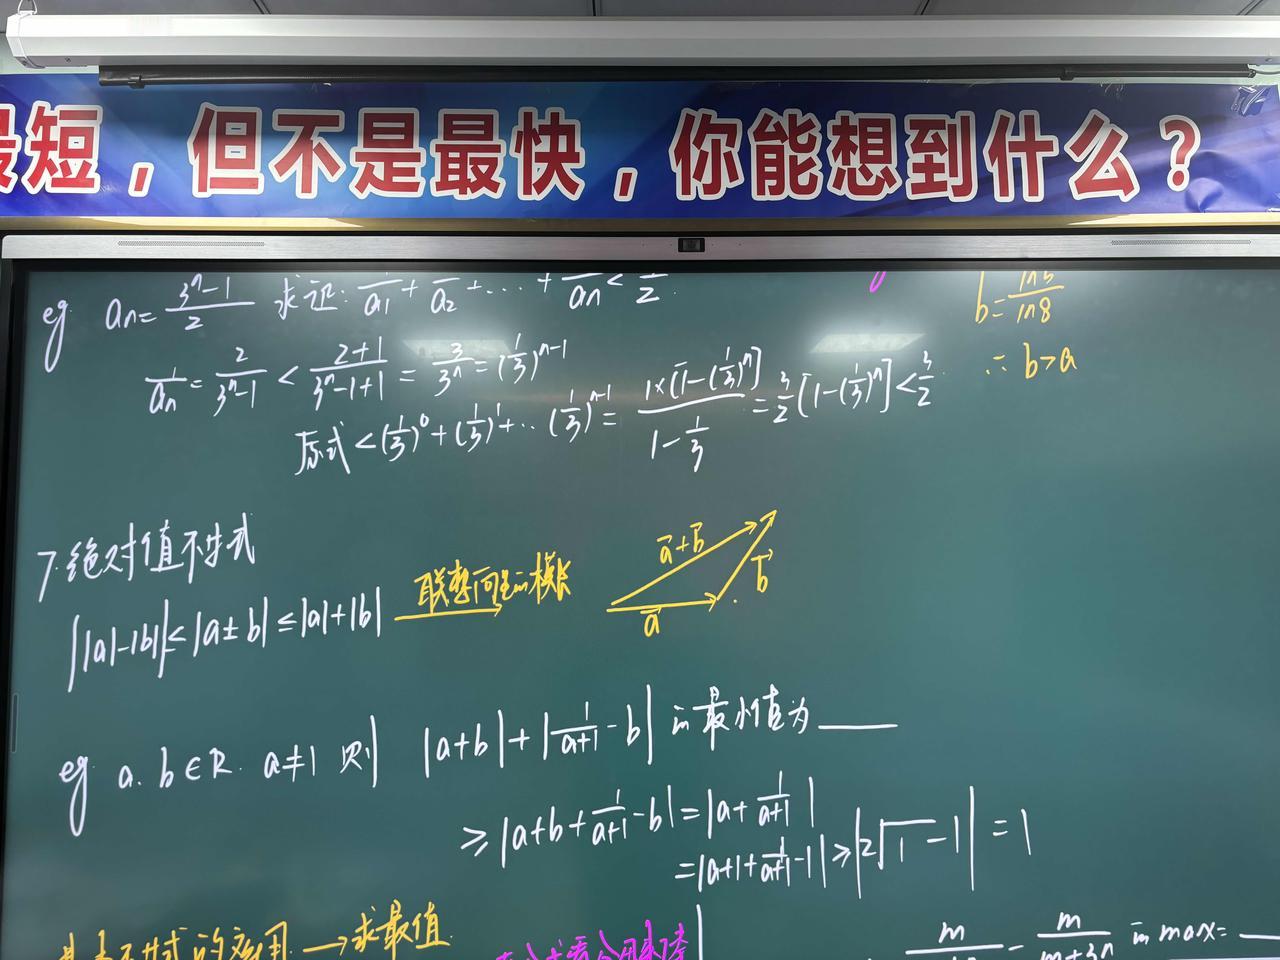 短，但不是最快，你能想到什么？
eg aₙ= (3ⁿ-1)/2 求证: 1/a₁ + 1/a₂ + ... + 1/aₙ < 3/2
1/aₙ = 2/(3ⁿ-1) < (2+1)/(3ⁿ-1+1) = 3/3ⁿ = (1/3)ⁿ⁻¹
原式 < (1/3)⁰ + (1/3)¹ + ·· (1/3)ⁿ⁻¹ = 1×[1-(1/3)ⁿ]/(1-1/3) = 3/2[1-(1/3)ⁿ] < 3/2
ln8
∴ b>a
7.绝对值不等式
||a|-|b|| ≤ |a±b| ≤ |a|+|b| 联想向量的模长
a⃗+b⃗
b⃗
a⃗
eg a. b∈R. a≠1 则 |a+b| + |1/(a+1) - b| 的最小值为____
≥ |a+b+1/(a+1)-b| = |a+1/(a+1)|
= |a+1+1/(a+1)-1| ≥ |2√1-1| = 1
不等式的应用 → 求最值
m/ - m/(m+3n) 的max=